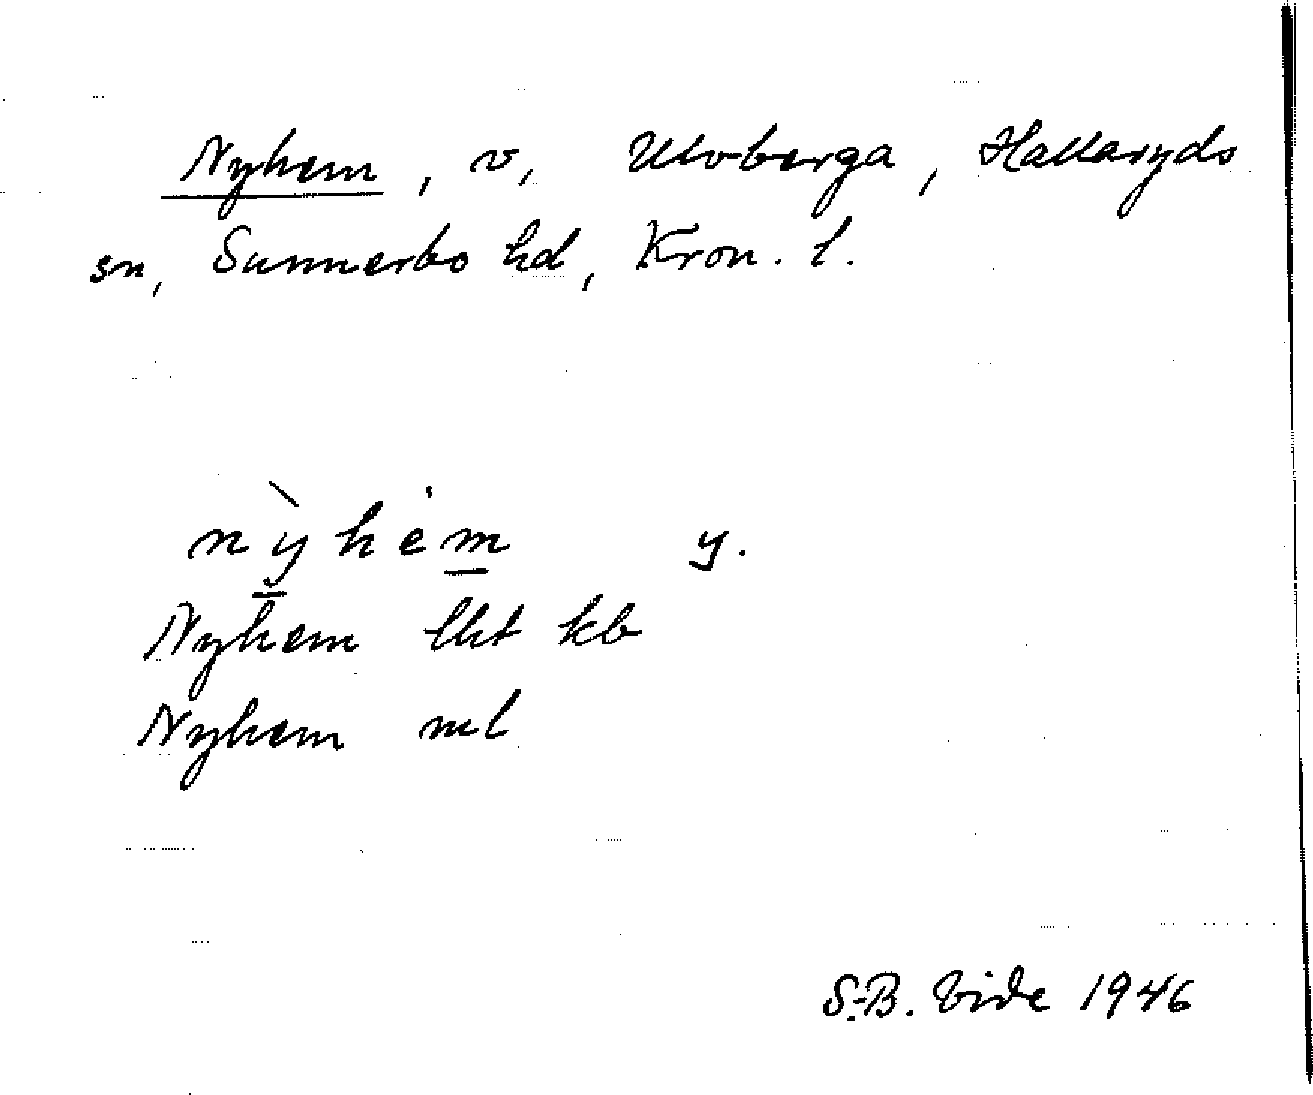 Nyhem, v, Ulvberga, Hallaryds
sn, Sunnerbo hd, Kron. l.
nỳhėm y.
Nyhem lht kb
Nyhem ml
S.-B. Vide 1946